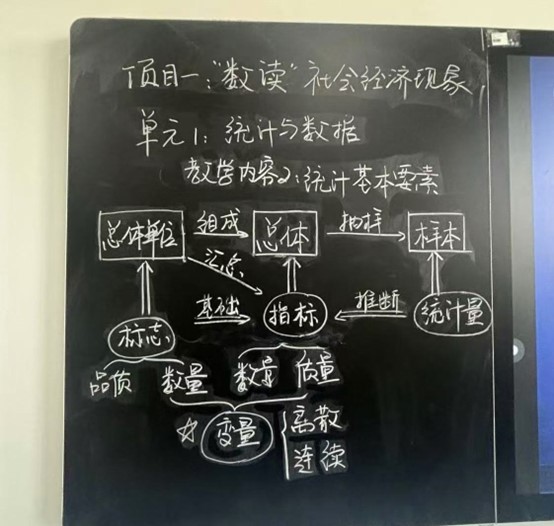 项目一:"数读"社会经济现象
单元1:统计与数据
教学内容2:统计基本要素
总体单位 组成 总体 抽样 样本
汇总
标志 基础 指标 推断 统计量
品质 数量 数量 质量
☆ 变量 离散
连续